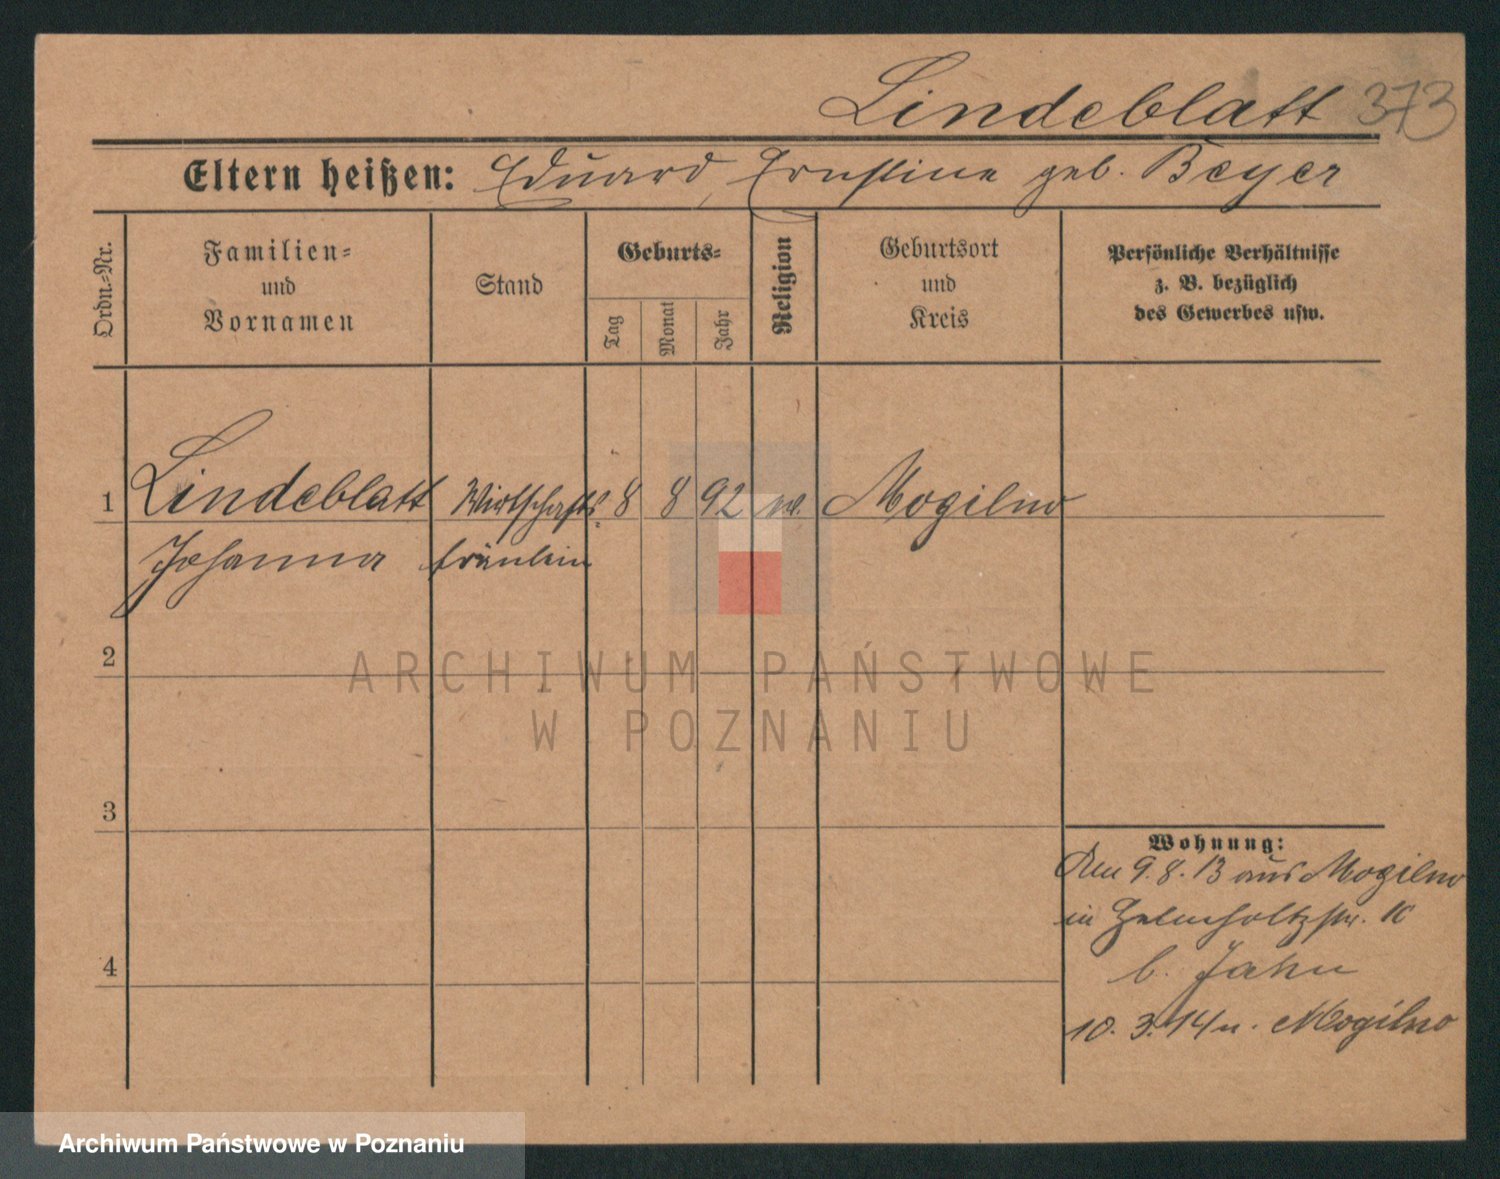 Lindeblatt 373
Eltern heißen: Eduard, Ernstine geb. Beyer
Ordn.-Nr.
Familien-
und
Vornamen
Stand
Geburts-
Tag
Monat
Jahr
Religion
Geburtsort
und
Kreis
Persönliche Verhältnisse
z. B. bezüglich
des Gewerbes usw.
1 Lindeblatt Wirtschafts- 8 8 92 Mogilno
Johanna fräulein
2
ARCHIWUM PAŃSTWOWE
W POZNANIU
3
Wohnung:
Den 9.8.13 aus Mogilno
in Helmholtzstr.
4
b. Jahn
10.3.14 n. Mogilno
Archiwum Państwowe w Poznaniu